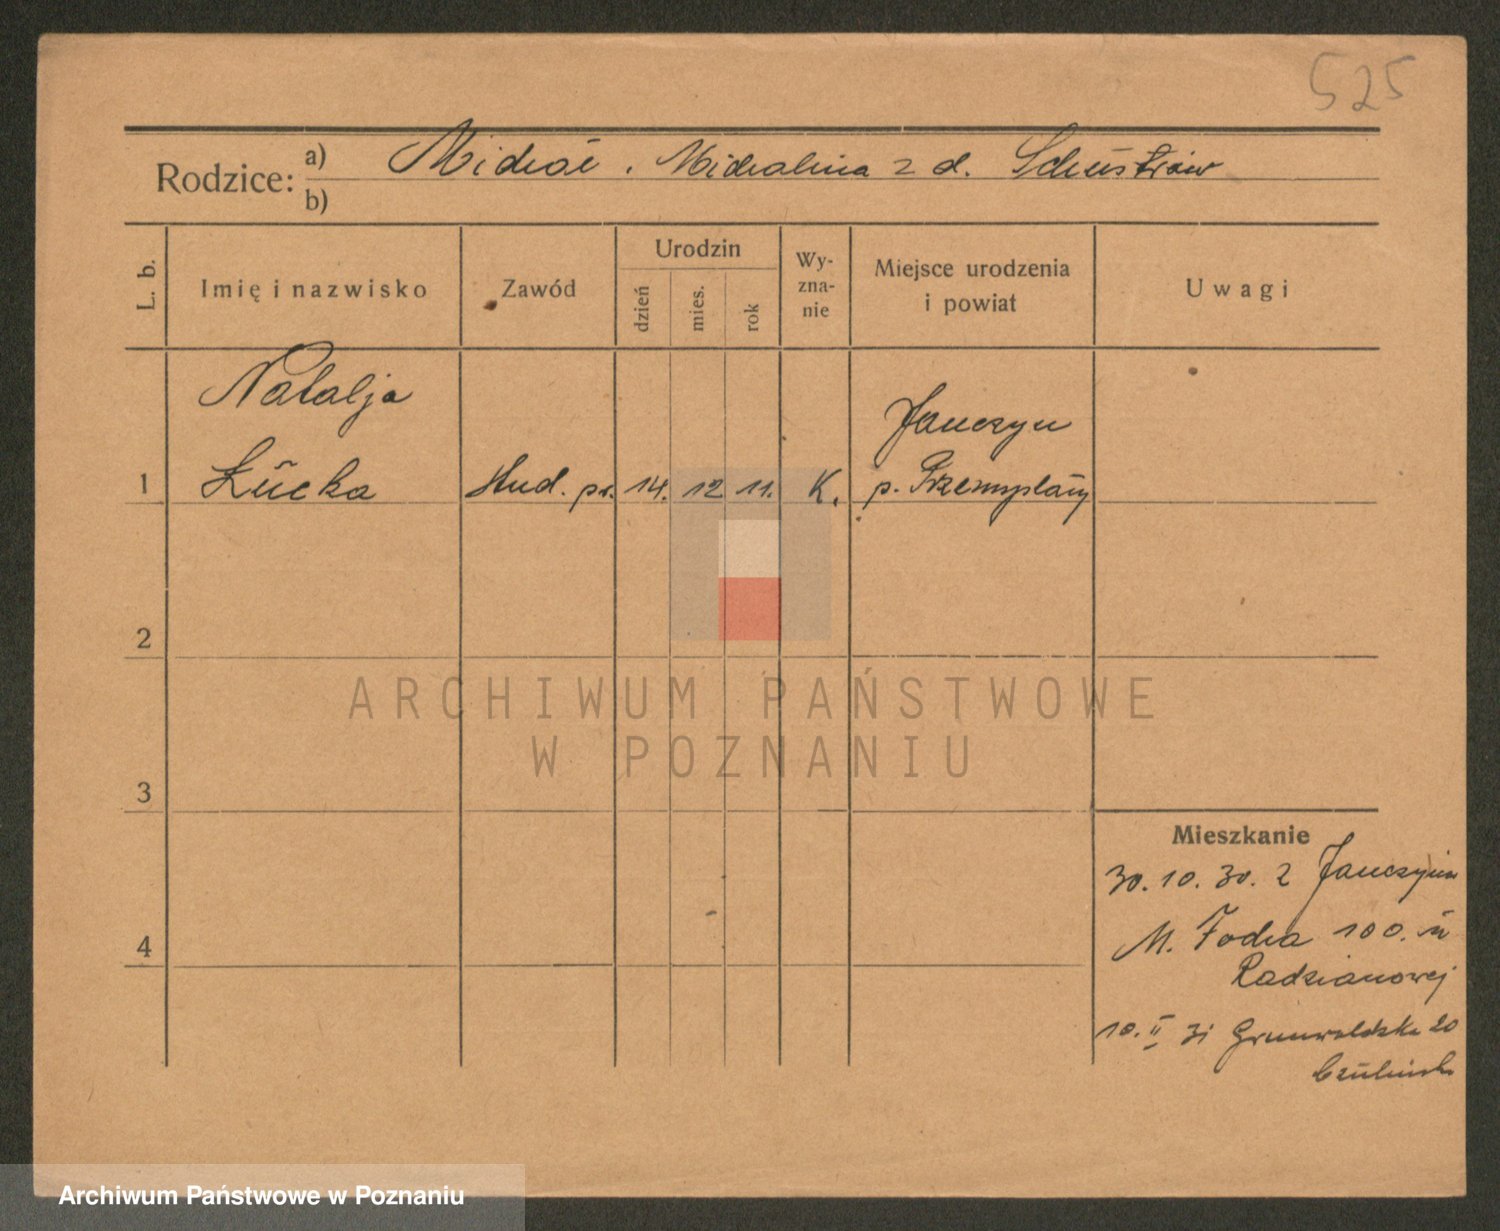 525
Rodzice: a) Michał i Michalina z d. Schustrów
b)
L. b. Imię i nazwisko Zawód Urodzin dzień mies. rok Wy-zna-nie Miejsce urodzenia i powiat Uwagi
Natalja Janczyn
1 Łucka stud. pr. 14. 12 11. K. p. Przemyślany
2
ARCHIWUM PAŃSTWOWE
W POZNANIU
3
Mieszkanie
30. 10. 30. z Janczyna
4 M. Focha 100. u
Radzianowej
10. II 31 Grunwaldzka 20
Archiwum Państwowe w Poznaniu